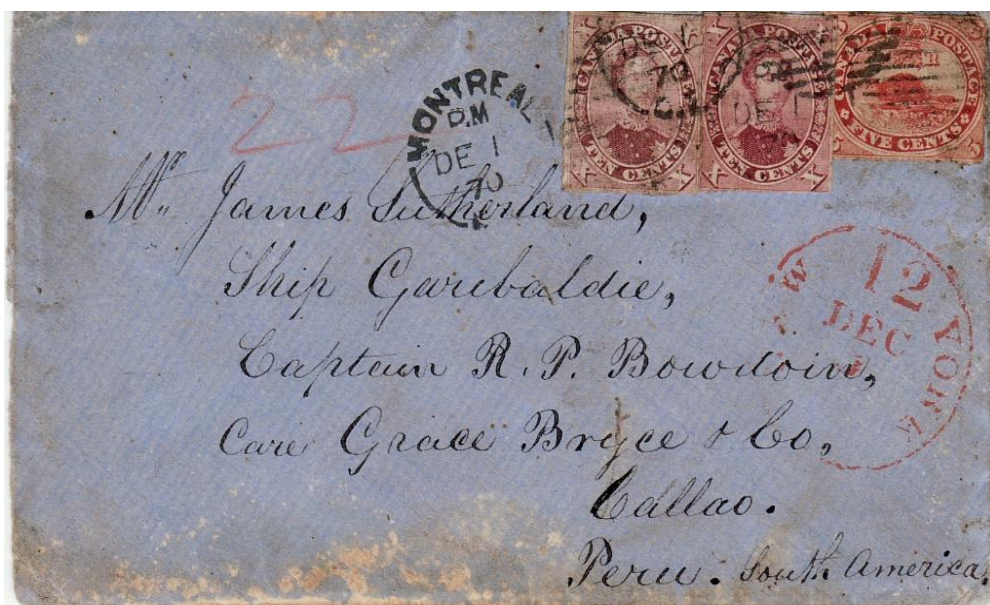 22
MONTREAL
P.M
DE 1
70
CANADA POSTAGE
X CENTS X
CANADA POSTAGE
X CENTS X
CANADA POSTAGE
5 FIVE CENTS 5
Mr. James Sutherland,
Ship Garibaldie,
Captain R. P. Bowdoin,
Care Grace Bryce & Co,
Callao.
Peru. South America.
NEW YORK
12
DEC